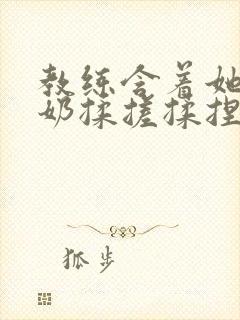 教练含着她
奶揉搓揉捏
狐步